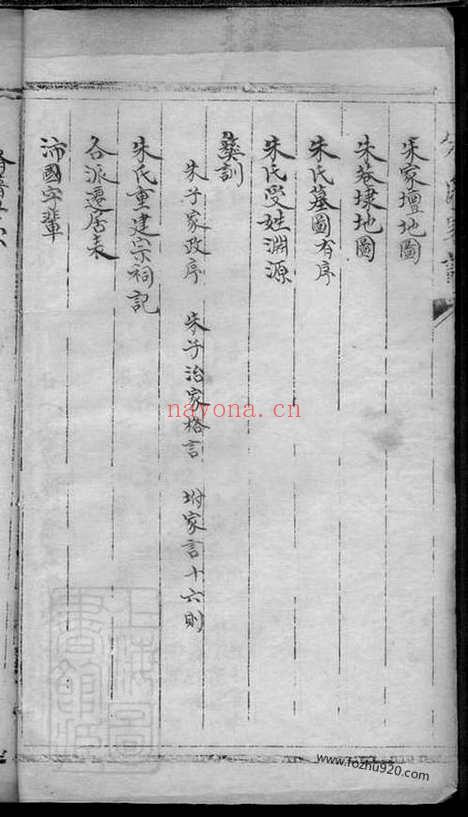 朱家壇地圖
朱巷埭地圖
朱氏墓圖有序
朱氏受姓淵源
彝訓
朱子家政序 朱子治家格言 坿家言十六則
朱氏重建宗祠記
各派遷居表
沛國字輩
nayona.cn
www.fozhu920.com